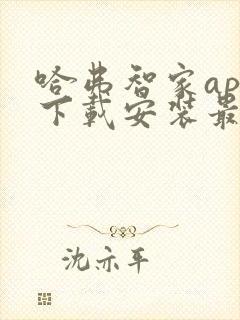 哈弗智家ap
下载安装最
沈亦平